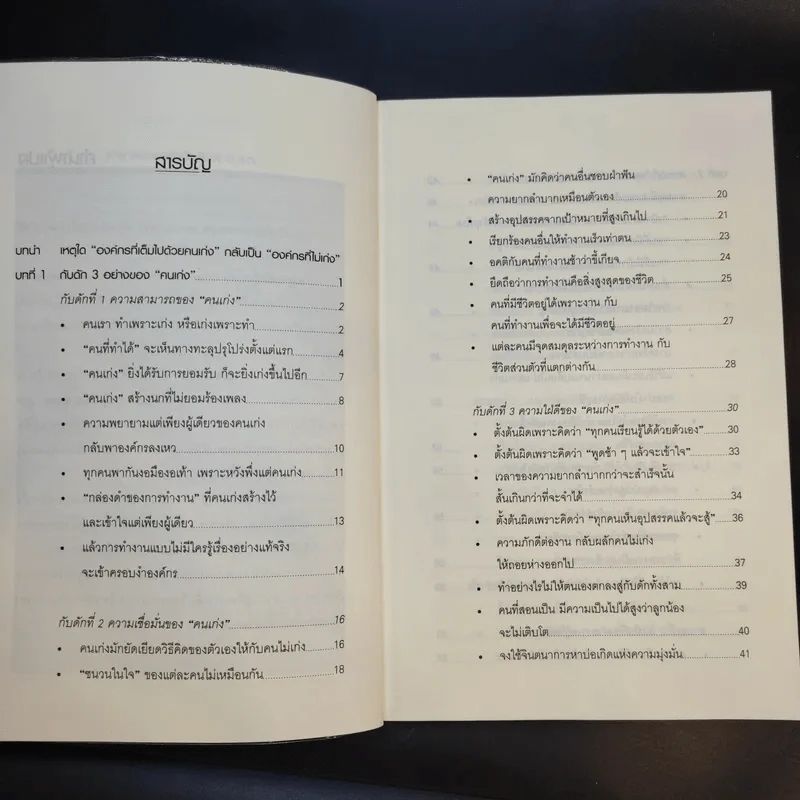 สารบัญ
บทนำ เหตุใด “องค์กรที่เต็มไปด้วยคนเก่ง” กลับเป็น “องค์กรที่ไม่เก่ง”
บทที่ 1 กับดัก 3 อย่างของ “คนเก่ง” 1
กับดักที่ 1 ความสามารถของ “คนเก่ง” 2
• คนเรา ทำเพราะเก่ง หรือเก่งเพราะทำ 2
• “คนที่ทำได้” จะเห็นทางทะลุปรุโปร่งตั้งแต่แรก 4
• “คนเก่ง” ยิ่งได้รับการยอมรับ ก็จะยิ่งเก่งขึ้นไปอีก 7
• “คนเก่ง” สร้างนกที่ไม่ยอมร้องเพลง 8
• ความพยายามแต่เพียงผู้เดียวของคนเก่ง
กลับพาองค์กรลงเหว 10
• ทุกคนพากันงอมืองอเท้า เพราะหวังพึ่งแต่คนเก่ง 11
• “กล่องดำของการทำงาน” ที่คนเก่งสร้างไว้
และเข้าใจแต่เพียงผู้เดียว 13
• แล้วการทำงานแบบไม่มีใครรู้เรื่องอย่างแท้จริง
จะเข้าครอบงำองค์กร 14
กับดักที่ 2 ความเชื่อมั่นของ “คนเก่ง” 16
• คนเก่งมักยัดเยียดวิธีคิดของตัวเองให้กับคนไม่เก่ง 16
• “ชนวนในใจ” ของแต่ละคนไม่เหมือนกัน 18
• “คนเก่ง” มักคิดว่าคนอื่นชอบฝ่าฟัน
ความยากลำบากเหมือนตัวเอง 20
• สร้างอุปสรรคจากเป้าหมายที่สูงเกินไป 21
• เรียกร้องคนอื่นให้ทำงานเร็วเท่าตน 23
• อคติกับคนที่ทำงานช้าว่าขี้เกียจ 24
• ยึดถือว่าการทำงานคือสิ่งสูงสุดของชีวิต 25
• คนที่มีชีวิตอยู่ได้เพราะงาน กับ
คนที่ทำงานเพื่อจะได้มีชีวิตอยู่ 27
• แต่ละคนมีจุดสมดุลระหว่างการทำงาน กับ
ชีวิตส่วนตัวที่แตกต่างกัน 28
กับดักที่ 3 ความใฝ่ดีของ “คนเก่ง” 30
• ตั้งต้นผิดเพราะคิดว่า “ทุกคนเรียนรู้ได้ด้วยตัวเอง” 30
• ตั้งต้นผิดเพราะคิดว่า “พูดซ้ำ ๆ แล้วจะเข้าใจ” 33
• เวลาของความยากลำบากกว่าจะสำเร็จนั้น
สั้นเกินกว่าที่จะจำได้ 34
• ตั้งต้นผิดเพราะคิดว่า “ทุกคนเห็นอุปสรรคแล้วจะสู้” 36
• ความภักดีต่องาน กลับผลักคนไม่เก่ง
ให้ถอยห่างออกไป 37
• ทำอย่างไรไม่ให้ตนเองตกลงสู่กับดักทั้งสาม 39
• คนที่สอนเป็น มีความเป็นไปได้สูงว่าลูกน้อง
จะไม่เติบโต 40
• จงใช้จินตนาการหาบ่อเกิดแห่งความมุ่งมั่น 41